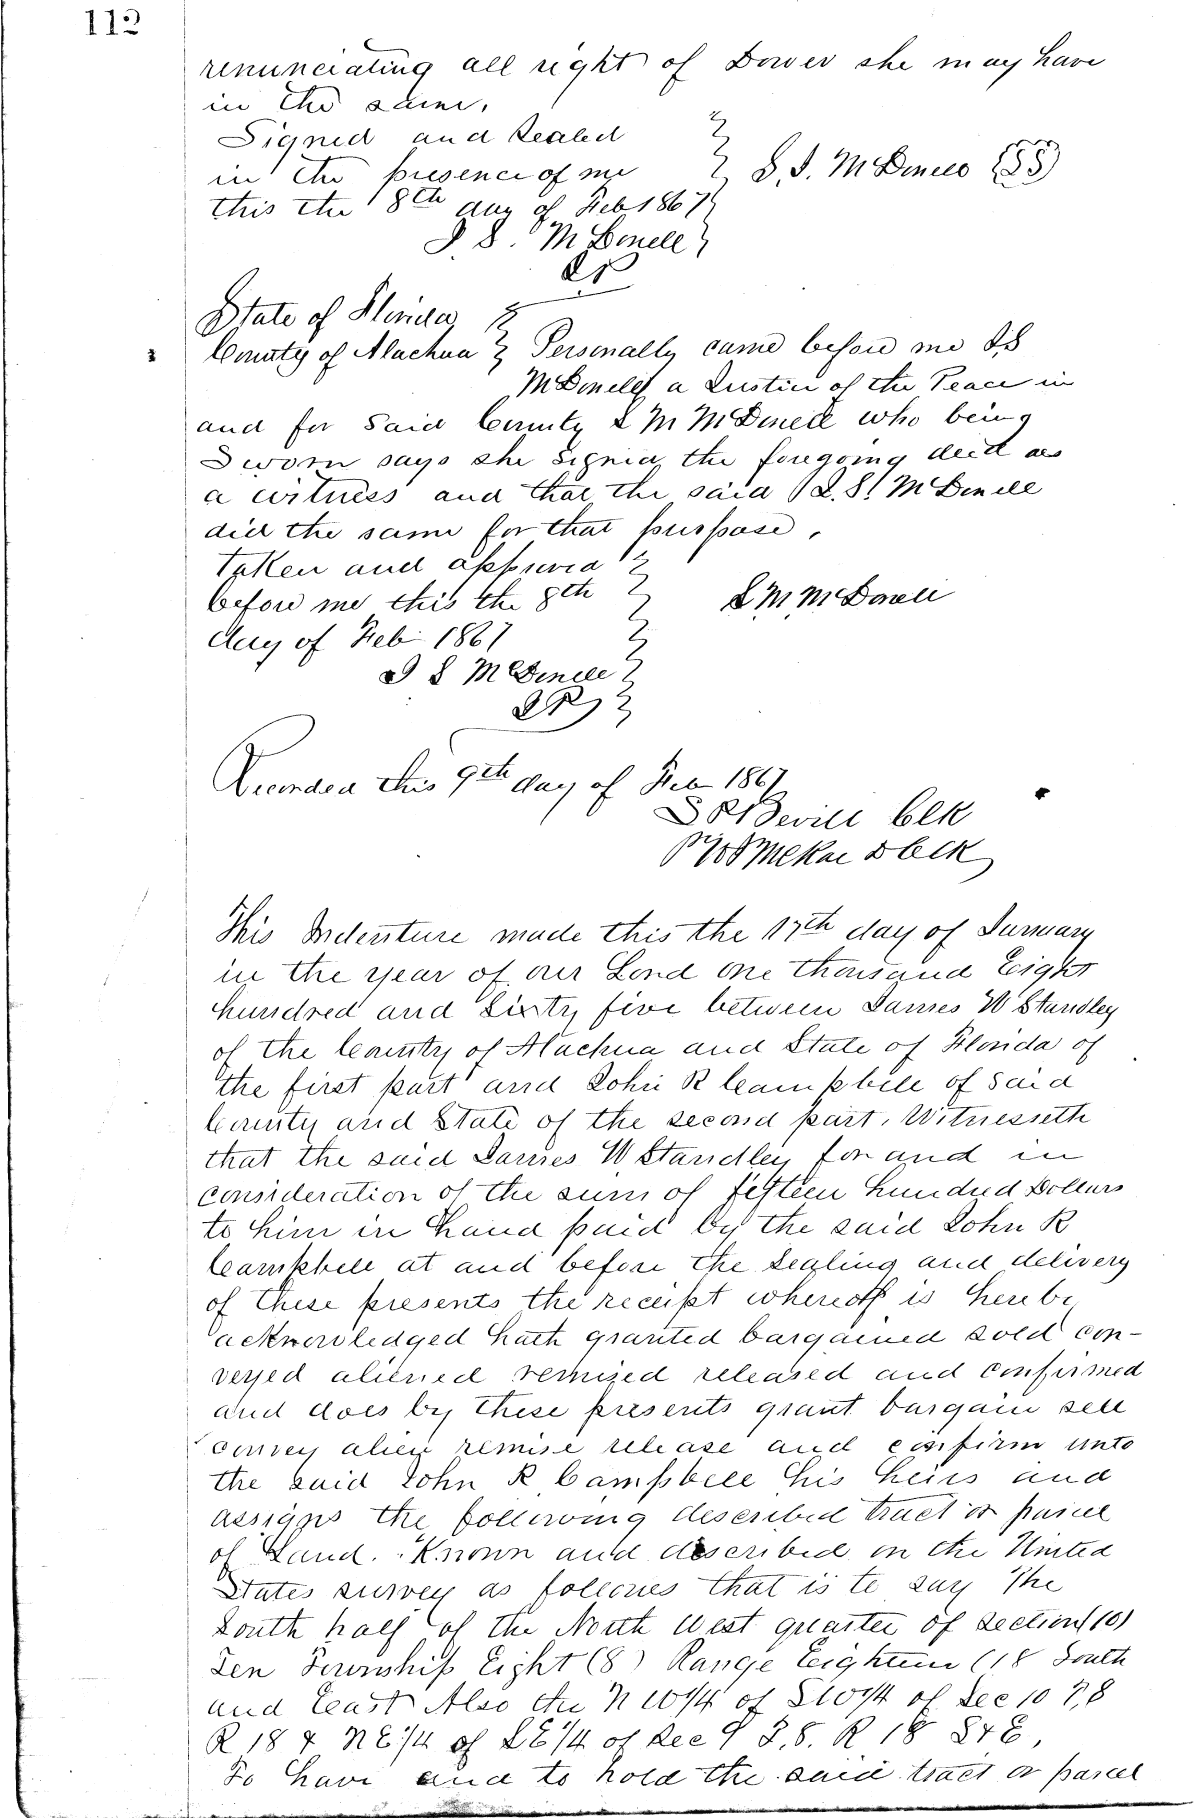 112
renunciating all right of Dower she may have
in the same.
Signed and Sealed
in the presence of me
S. S. McDonell (SS)
this the 8th day of Feb 1867
McDonell
State of Florida
County of Alachua Personally came before me
McDonell a Justice of the Peace in
and for Said County L M McDonell who being
Sworn says she signed the foregoing deed as
a witness and that the said S. McDonell
did the same for that purpose.
Taken and approved
before me this the 8th
L M McDonell
day of Feb 1867
McDonell
Recorded this 9th day of Feb 1867
Bevill Clk
D Clk
This Indenture made this the 17th day of January
in the year of our Lord one thousand Eight
hundred and Sixty five between James W Standley
of the County of Alachua and State of Florida of
the first part and John R Campbell of Said
County and State of the second part. Witnesseth
that the said James W Standley for and in
consideration of the sum of fifteen hundred Dollars
to him in hand paid by the said John R
Campbell at and before the Sealing and delivery
of these presents the receipt whereoff is hereby
acknowledged hath granted bargained sold con-
veyed aliened remised released and confirmed
and does by these presents grant bargain sell
convey alien remise release and confirm unto
the said John R Campbell his heirs and
assigns the following described tract or parcel
of Land. Known and described on the United
States survey as follows that is to say The
South half of the North West quarter of Section (10)
Ten Township Eight (8) Range Eighteen (18 South
and East Also the N W 1/4 of S W 1/4 of Sec 10 T, 8
R 18 & N E 1/4 of S E 1/4 of Sec 9 T, 8. R 18 S & E,
To have and to hold the said tract or parcel